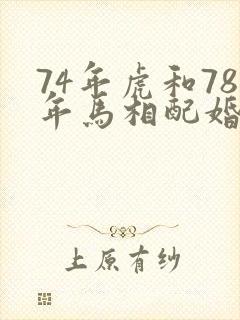 74年虎和78
年马相配婚
上原有纱